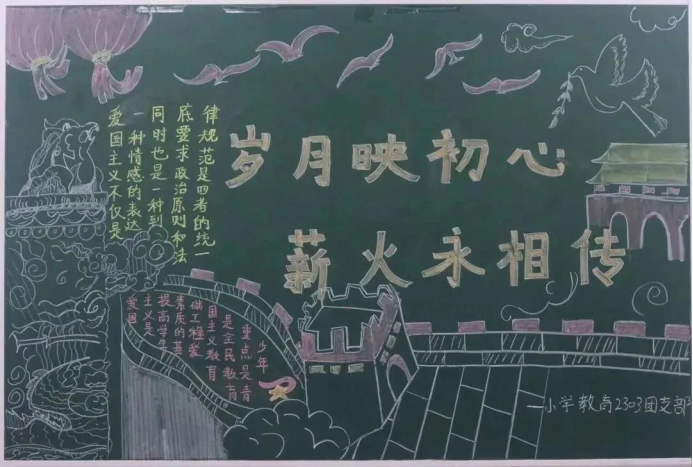 岁月映初心
薪火永相传
爱国主义不仅是
一种情感的表达
同时也是一种到
底要求政治原则和法
律规范是四者的统一
爱国
主义是
提高学生
素质的基
础工程爱
国主义教育
是全民教育
重点是青
少年
—小学教育2303团支部